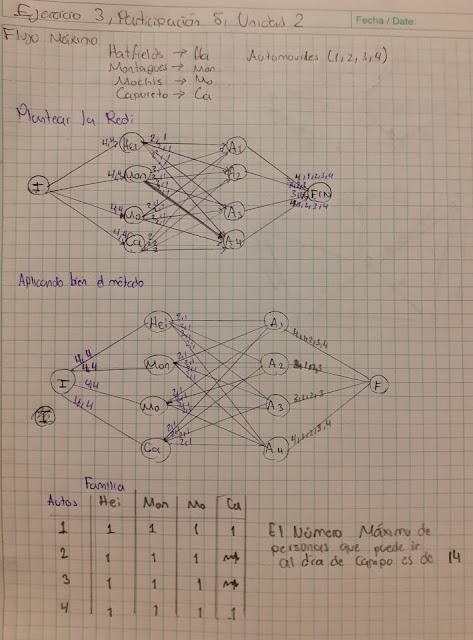 Ejercicio 3, Participación 5, Unidad 2
Fecha / Date:
Flujo Máximo
Hatfields → Ha
Automoviles (1,2,3,4)
Montagues → Mon
Mochis → Mo
Capuleto → Ca
Plantear la Red:
Hei
A1
4,4
Mon
A2
4,4
I
FIN
4,4
Mo
A3
4,4
Ca
A4
Aplicando bien el método
Hei
A1
4,4
4,1,2,3,4
4,4
Mon
A2
I
F
4,4
Mo
A3
3,1,2,3
4,4
4,1,2,3,4
Ca
A4
Familia
Autos Hei Mon Mo Ca
1 1 1 1 1
2 1 1 1
3 1 1 1
4 1 1 1 1
El Número Máximo de
personas que puede ir
al día de campo es de 14